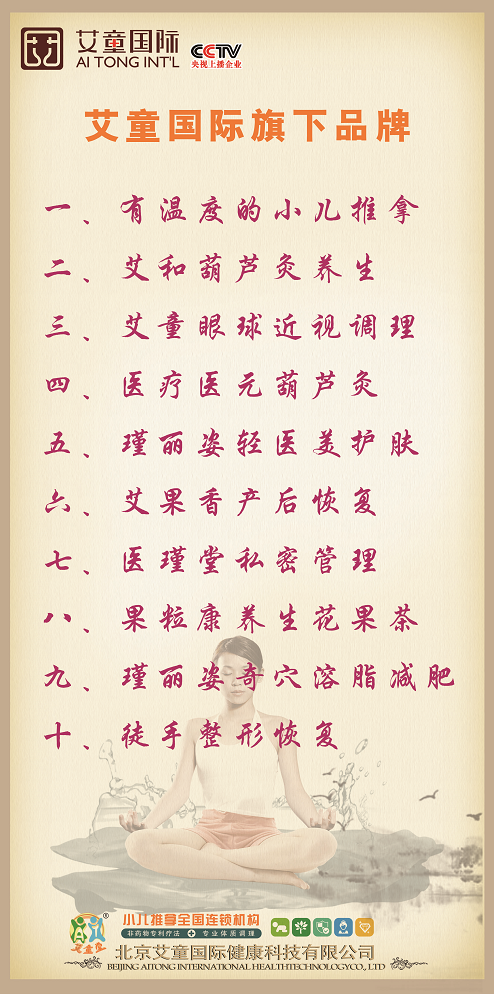 艾童国际
AI TONG INT'L
CCTV
央视上播企业
艾童国际旗下品牌
一、有温度的小儿推拿
二、艾和葫芦灸养生
三、艾童眼球近视调理
四、医疗医元葫芦灸
五、瑾丽姿轻医美护肤
六、艾果香产后恢复
七、医瑾堂私密管理
八、果粒康养生花果茶
九、瑾丽姿奇穴溶脂减肥
十、徒手整形恢复
小儿推拿全国连锁机构
非药物专利疗法 + 专业体质调理
艾童堂
北京艾童国际健康科技有限公司
BEIJING AITONG INTERNATIONAL HEALTHTECHNOLOGYCO., LTD